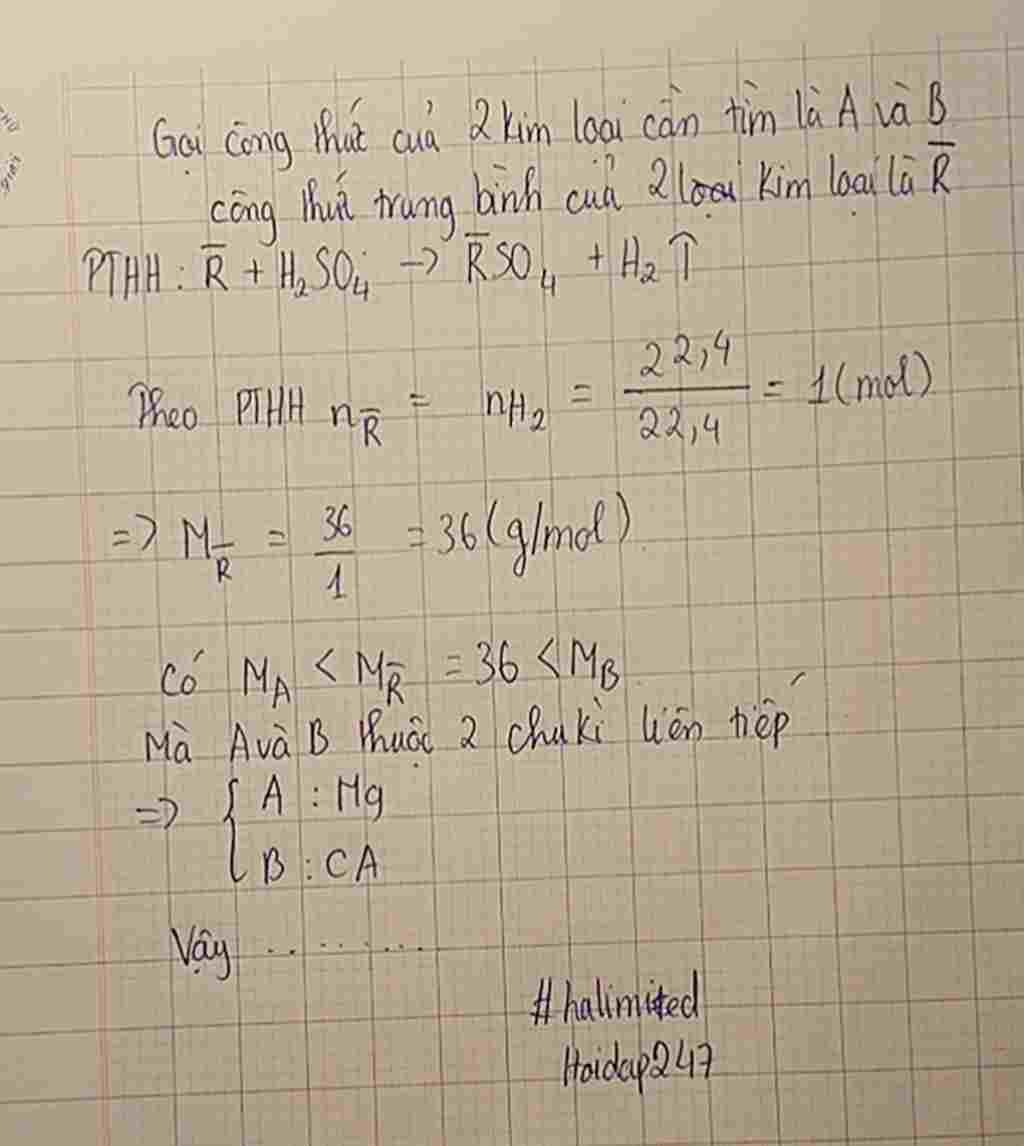 Gọi công thức của 2 kim loại cần tìm là A và B
công thức trung bình của 2 loại kim loại là R̅
PTHH : R̅ + H₂SO₄ → R̅SO₄ + H₂ ↑
Theo PTHH n_R̅ = nH₂ = 22,4/22,4 = 1 (mol)
=> M_R̅ = 36/1 = 36 (g/mol).
Có M_A < M_R̅ = 36 < M_B.
Mà A và B thuộc 2 chu kì liên tiếp
=> { A : Mg
B : CA
Vậy .........
#halimited
Hoidap247